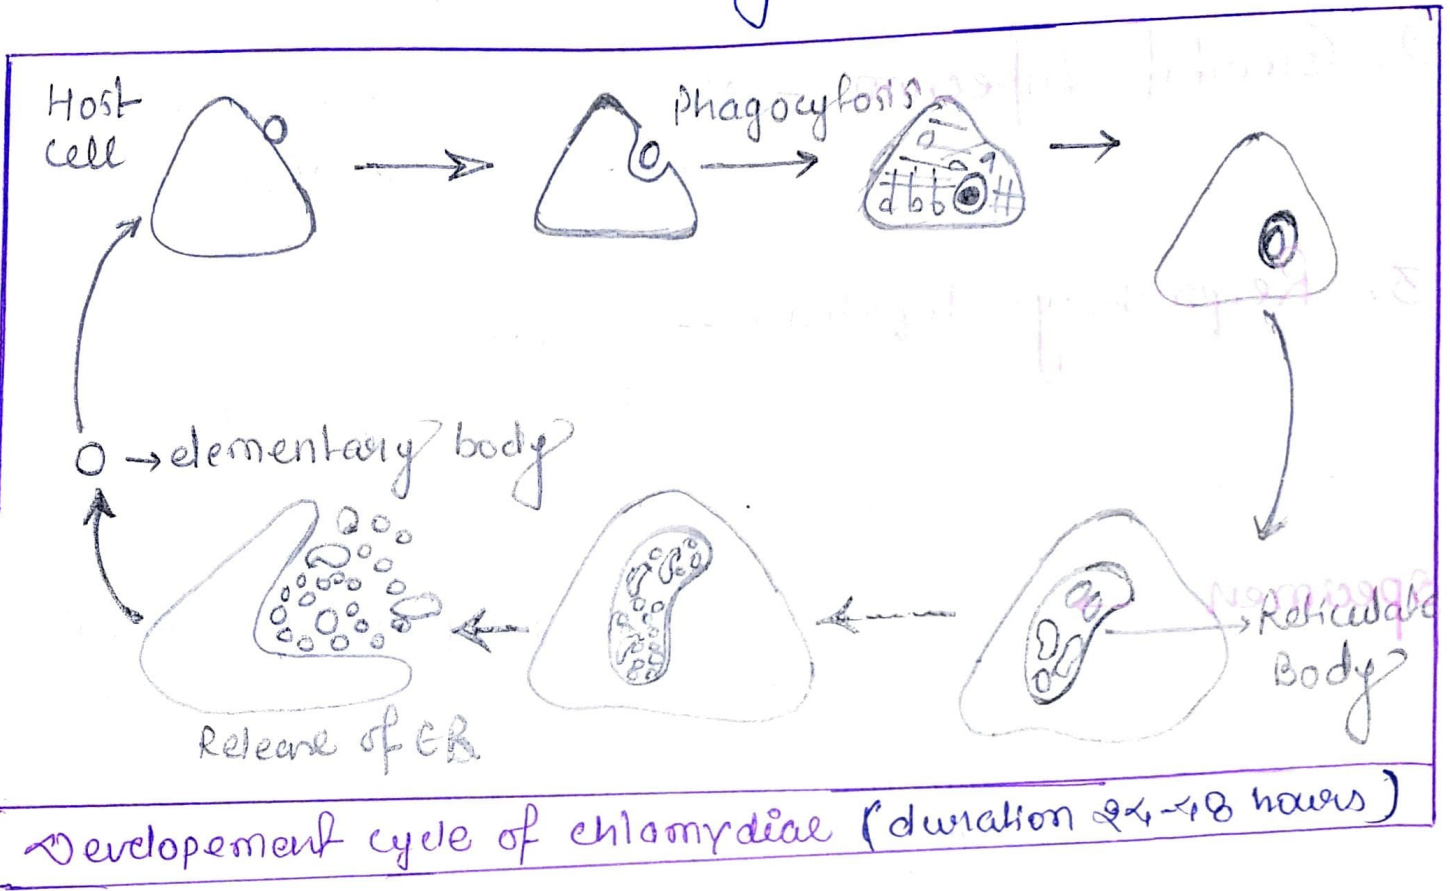 Host
cell
Phagocytosis
→ elementary body
Reticulate
Body
Release of EB
Developement cycle of chlamydiae (duration 24-48 hours)